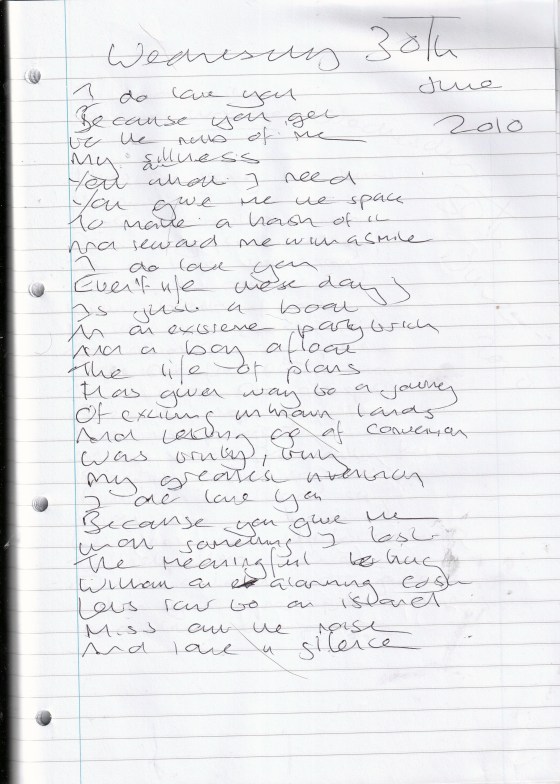 Wednesday 30th
June
2010
I do love you
Because you get
to the of me
My silliness
You know I need
You give me the space
To make a hash of it
And reward me with a smile
I do love you
Even if life these days
Is just a boat
In an extreme party trick
And a boy afloat
The life of plans
Has given way to a journey
Of exciting unknown lands
And letting go of convention
Was truly, truly
My greatest invention
I do love you
Because you give me
something I lost
The meaningful
Without an alarming cost
Lets run to an island
Miss out the noise
And love in silence